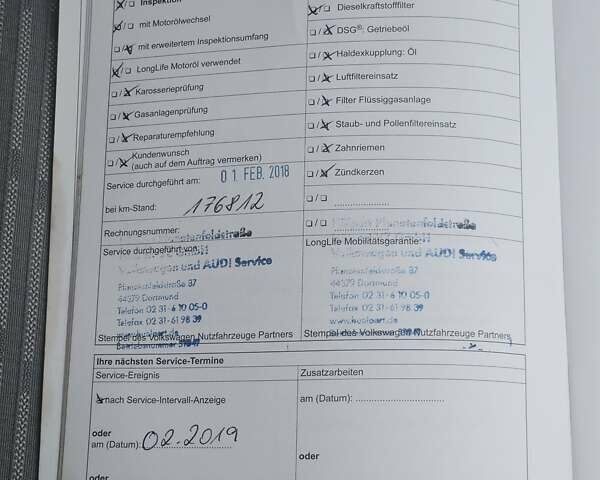 Inspektion
Dieselkraftstofffilter
mit Motorölwechsel
DSG®: Getriebeöl
mit erweitertem Inspektionsumfang
Haldexkupplung: Öl
LongLife Motoröl verwendet
Luftfiltereinsatz
Karosserieprüfung
Filter Flüssiggasanlage
Gasanlagenprüfung
Staub- und Pollenfiltereinsatz
Reparaturempfehlung
Zahnriemen
Kundenwunsch
(auch auf dem Auftrag vermerken)
Zündkerzen
Service durchgeführt am: 01 FEB. 2018
bei km-Stand: 176812
Rechnungsnummer:
Service durchgeführt von:
LongLife Mobilitätsgarantie:
Volkswagen und AUDI Service
Volkswagen und AUDI Service
Planetenfeldstraße 87
44379 Dortmund
Telefon 02 31-6 10 05-0
Telefax 02 31-61 98 39
Planetenfeldstraße 87
44379 Dortmund
Telefon 02 31-6 10 05-0
Telefax 02 31-61 98 39
Stempel des Volkswagen Nutzfahrzeuge Partners
Stempel des Volkswagen Nutzfahrzeuge Partners
Ihre nächsten Service-Termine
Service-Ereignis
Zusatzarbeiten
nach Service-Intervall-Anzeige
am (Datum):
oder
am (Datum): 02.2019
oder
oder